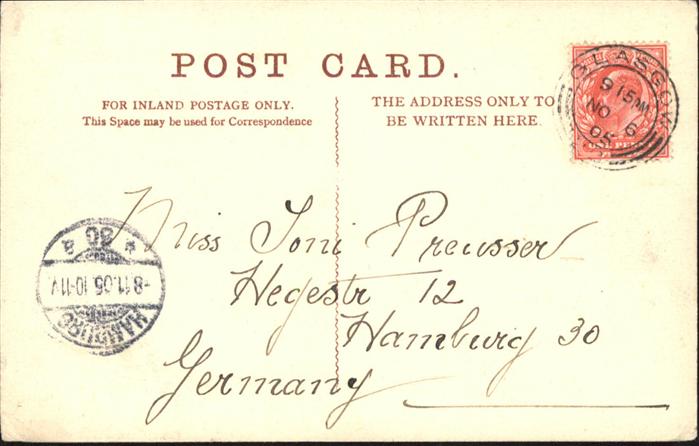 POST CARD.
FOR INLAND POSTAGE ONLY.
This Space may be used for Correspondence
THE ADDRESS ONLY TO
BE WRITTEN HERE.
GLASGOW
9 15 AM
NO 6
05
ONE PENNY
Miss Toni Preusser
Hegestr 12
Hamburg 30
Germany
HAMBURG
-8.11.05.10-11V.
* 30 a